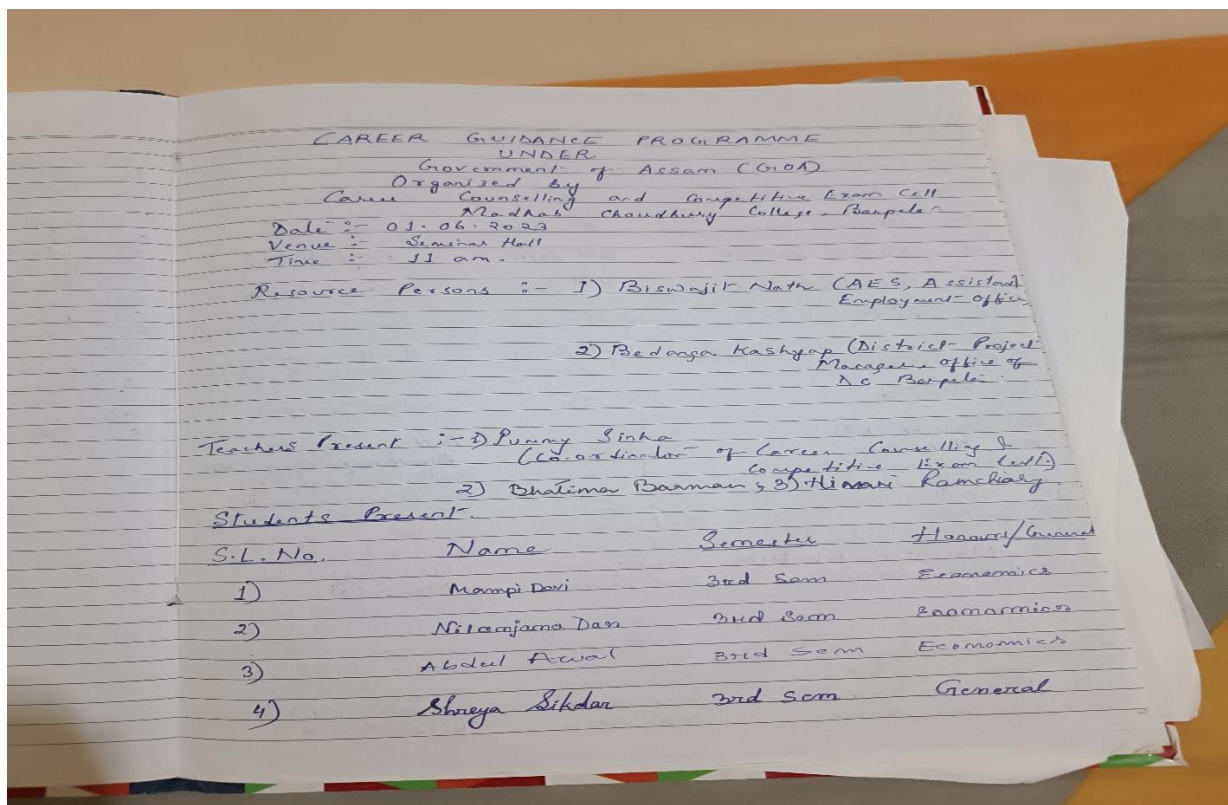 CAREER GUIDANCE PROGRAMME
UNDER
Government of Assam (GOA)
Organized by
Career Counselling and Competitive Exam Cell
Madhab Choudhury College, Barpeta
Date :- 01.06.2023
Venue :- Seminar Hall
Time :- 11 am.
Resource Persons :- 1) Biswajit Nath (AES, Assistant
Employment office
2) Bedanga Kashyap (District Project
Manager, office of
DC Barpeta
Teachers Present :- 1) Punmy Sinha
(Co-ordinator of Career Counselling &
Competitive Exam Cell)
2) Bhatima Barman, 3) Ramchiary
Students Present.
S.L. No. Name Semester Honours/General
1) Mampi Devi 3rd Sem Economics
2) Nilamjana Das 3rd Sem Economics
3) Abdul Awal 3rd Sem Economics
4) Shreya Sikdar 3rd Sem General